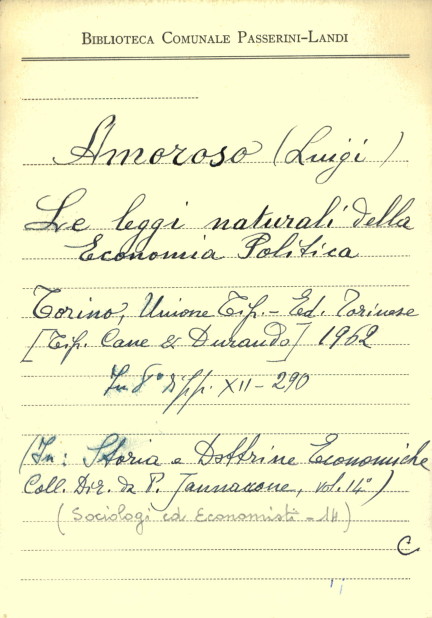 BIBLIOTECA COMUNALE PASSERINI-LANDI
Amoroso (Luigi)
Le leggi naturali della
Economia Politica
Torino, Unione Tip.- Ed. Torinese
[Tip. Cane & Durando] 1962
In 8° di pp. XII - 290
(In: Storia e Dottrine Economiche
Coll. Dir. da P. Jannaccone, vol. 14°)
(Sociologi ed Economisti - 14)
C